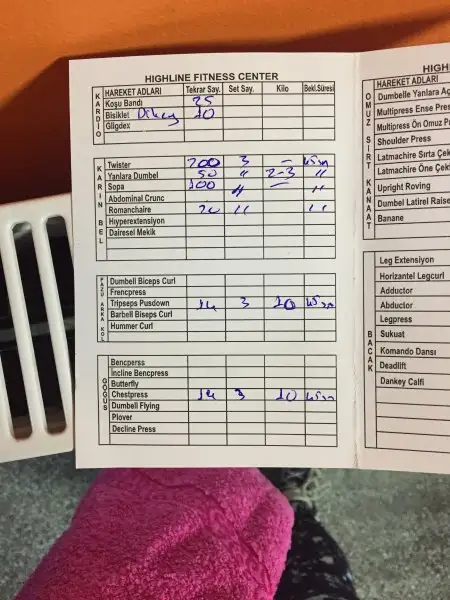 HIGHLINE FITNESS CENTER
KARDİO
HAREKET ADLARI Tekrar Say. Set Say. Kilo Bekl.Süresi
Koşu Bandı 25
Bisiklet Dikey 10
Gligdex
KARIN BEL
Twister 200 3 – 45sn
Yanlara Dumbel 50 " 2-3 "
Sopa 100 " – "
Abdominal Crunc
Romanchaire 20 " "
Hıyperextensiyon
Dairesel Mekik
PAZU ARKA KOL
Dumbell Biceps Curl
Frencpress
Tripseps Pusdown 14 3 10 45sn
Barbell Biseps Curl
Hummer Curl
GÖĞÜS
Bencperss
İncline Bencpress
Butterfly
Chestpress 14 3 10 45sn
Dumbell Flying
Plover
Decline Press
HIGH
OMUZ SIRT KANAAT
HAREKET ADLARI
Dumbelle Yanlara Aç
Multipress Ense Pres
Multipress Ön Omuz P
Shoulder Press
Latmachire Sırta Çek
Latmachire Öne Çek
Upright Roving
Dumbel Latirel Raise
Banane
BACAK
Leg Extensiyon
Horizantel Legcurl
Adductor
Abductor
Legpress
Sukuat
Komando Dansı
Deadlift
Dankey Calfi